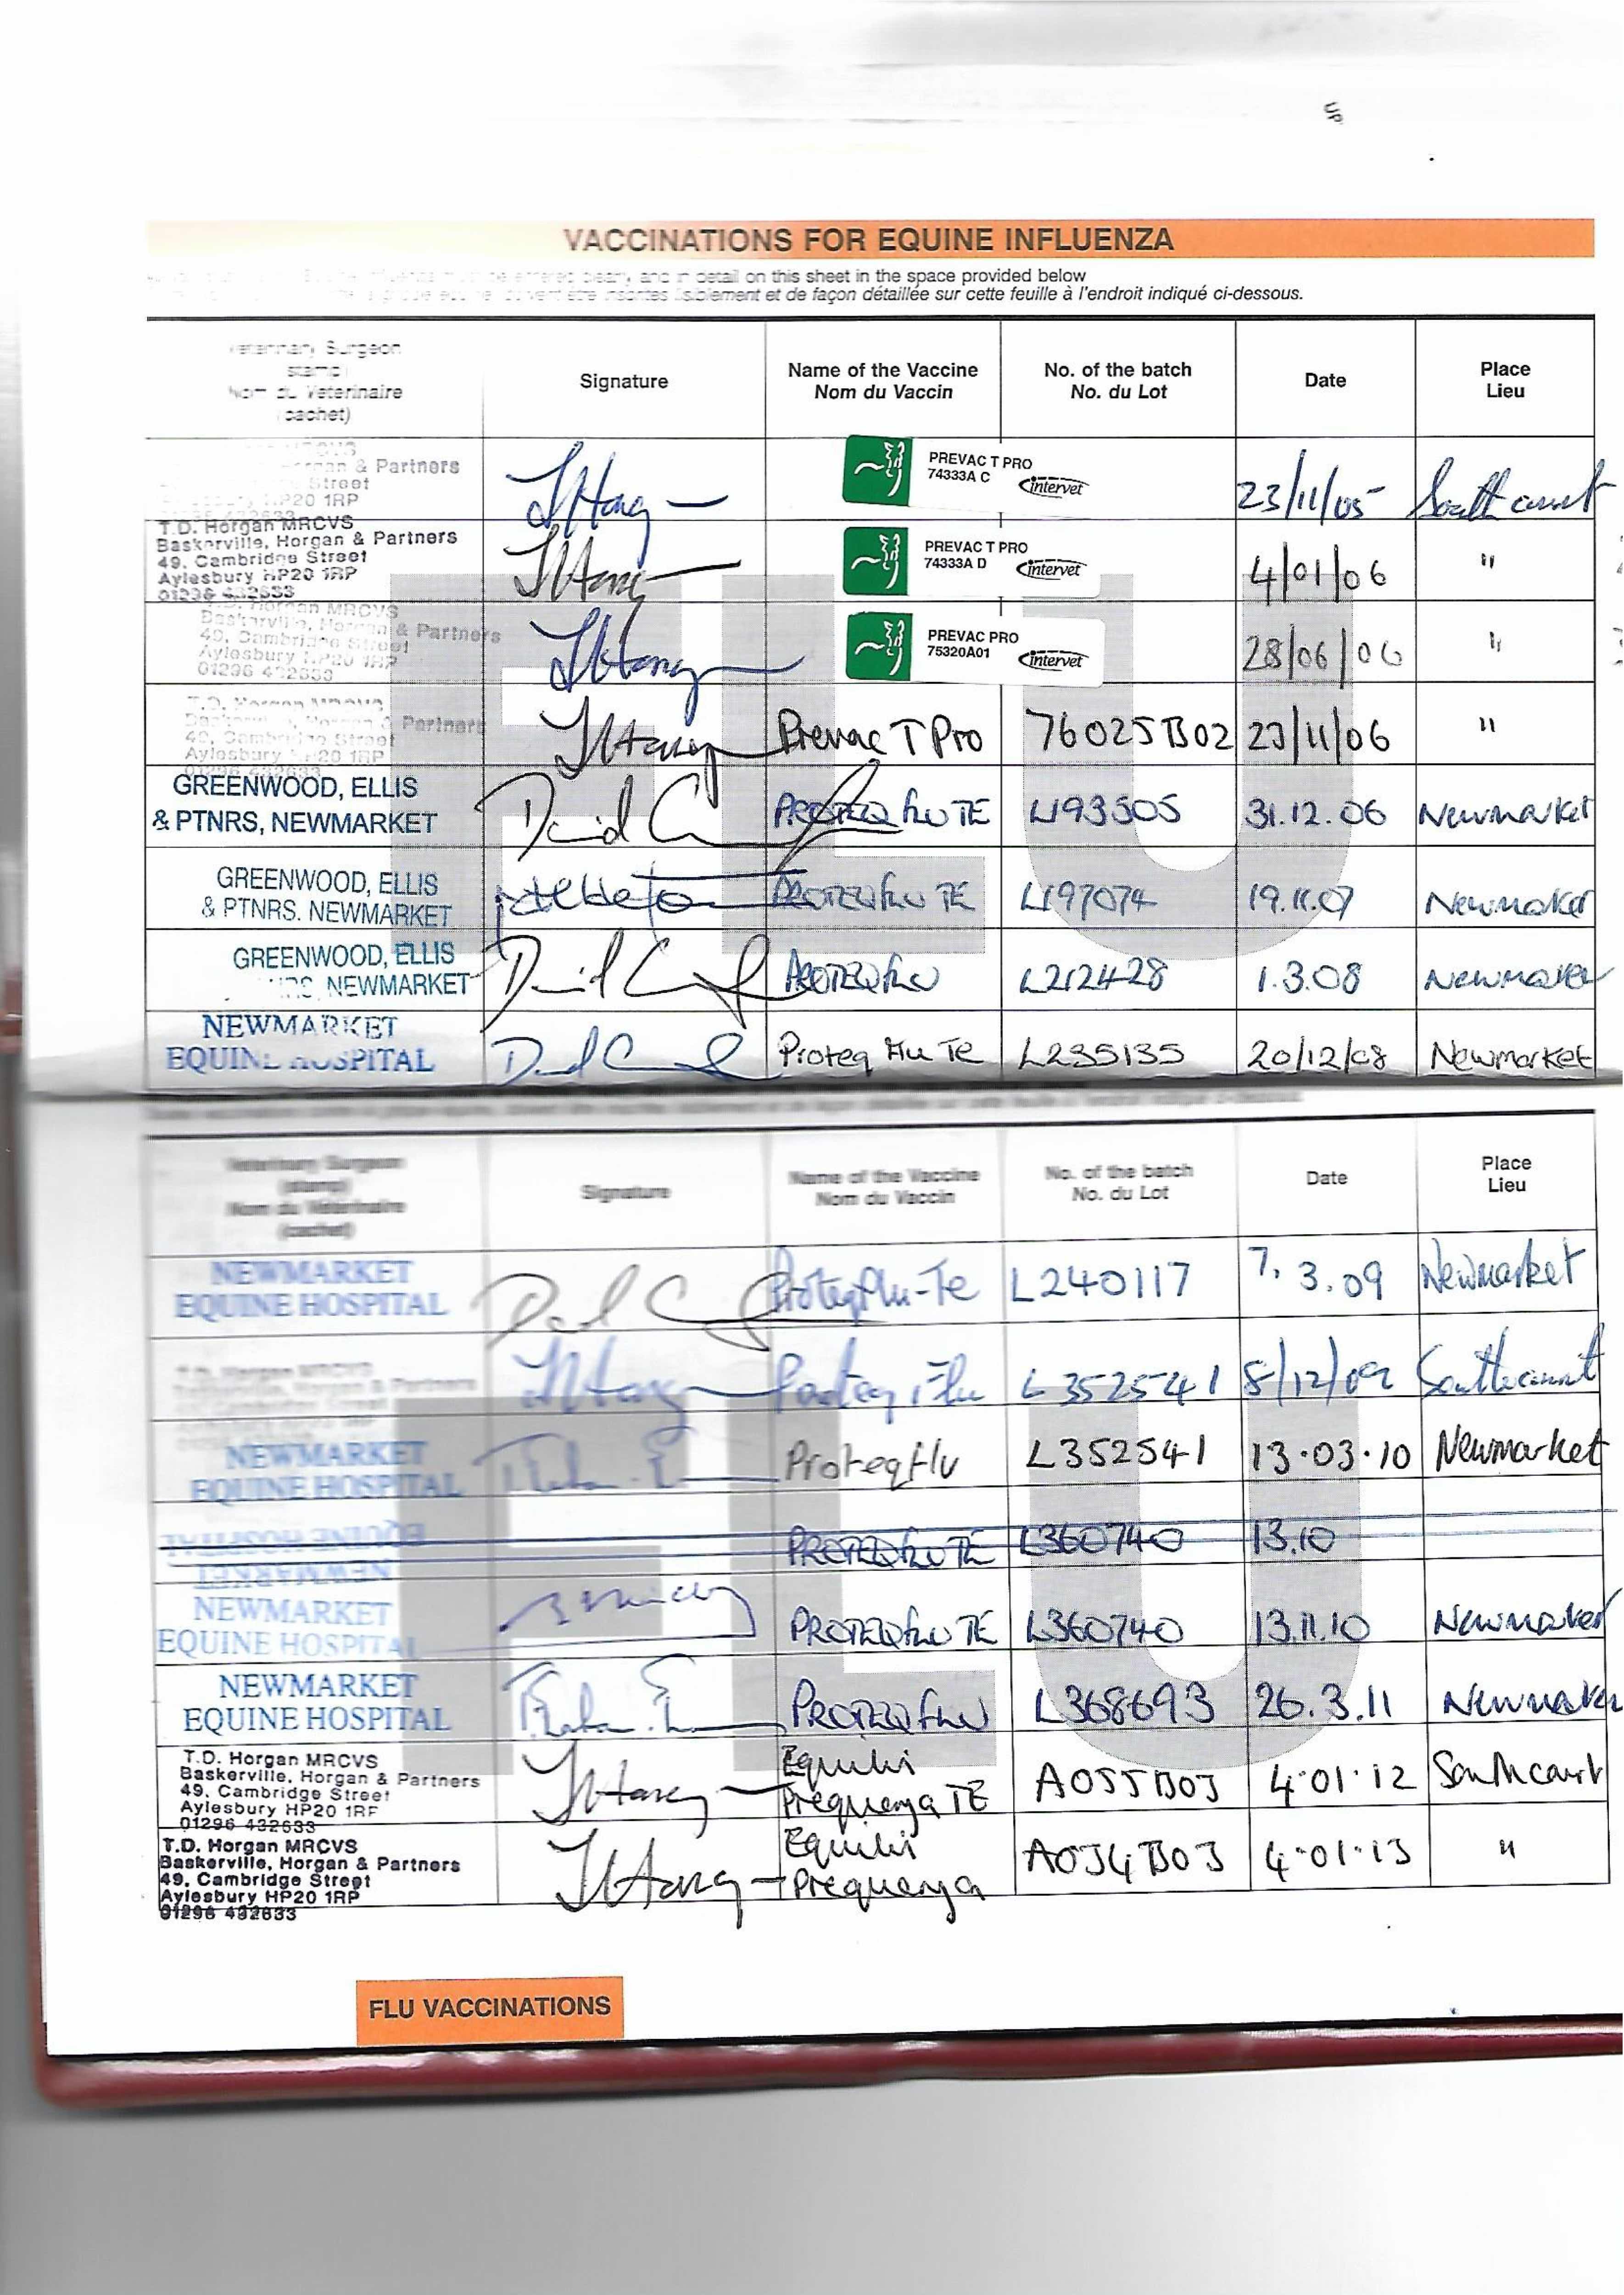 VACCINATIONS FOR EQUINE INFLUENZA
and in detail on this sheet in the space provided below
lisiblement et de façon détaillée sur cette feuille à l'endroit indiqué ci-dessous.
Veterinary Surgeon
(stamp)
Nom du Veterinaire
(cachet)
Signature
Name of the Vaccine
Nom du Vaccin
No. of the batch
No. du Lot
Date
Place
Lieu
& Partners
Street
HP20 1RP
PREVAC T PRO
74333A C
intervet
23/11/05 Southcourt
T.D. Horgan MRCVS
Baskerville, Horgan & Partners
49, Cambridge Street
Aylesbury HP20 1RP
01296 432633
PREVAC T PRO
74333A D
intervet
4/01/06 "
Horgan MRCVS
Baskerville, Horgan & Partners
49, Cambridge Street
Aylesbury HP20 1RP
01296 432633
PREVAC PRO
75320A01
intervet
28/06/06 "
T.D. Horgan MRCVS
Horgan & Partners
49, Cambridge Street
Aylesbury HP20 1RP
01296 432633
Prevac T Pro 76025B02 23/11/06 "
GREENWOOD, ELLIS
& PTNRS, NEWMARKET
PROTEQ FLU TE L193505 31.12.06 Newmarket
GREENWOOD, ELLIS
& PTNRS. NEWMARKET
PROTEQ FLU TE L197074 19.11.07 Newmarket
GREENWOOD, ELLIS
NEWMARKET
PROTEQ FLU L212428 1.3.08 Newmarket
NEWMARKET
EQUINE HOSPITAL
Proteq Flu Te L235135 20/12/08 Newmarket
FLU
Veterinary Surgeon
(stamp)
Nom du Vétérinaire
(cachet)
Signature
Name of the Vaccine
Nom du Vaccin
No. of the batch
No. du Lot
Date
Place
Lieu
NEWMARKET
EQUINE HOSPITAL
Proteqflu-Te L240117 7.3.09 Newmarket
T.D. Horgan MRCVS
Baskerville, Horgan & Partners
Proteq Flu L352541 8/12/09 Southcourt
NEWMARKET
EQUINE HOSPITAL
Proteqflu L352541 13.03.10 Newmarket
EQUINE HOSPITAL
NEWMARKET
PROTEQ FLU TE L360740 13.10
NEWMARKET
EQUINE HOSPITAL
PROTEQ FLU TE L360740 13.11.10 Newmarket
NEWMARKET
EQUINE HOSPITAL
PROTEQ FLU L368693 26.3.11 Newmarket
T.D. Horgan MRCVS
Baskerville, Horgan & Partners
49, Cambridge Street
Aylesbury HP20 1RP
01296 432633
Equilis
Prequenza TE A055B03 4.01.12 Southcourt
T.D. Horgan MRCVS
Baskerville, Horgan & Partners
49, Cambridge Street
Aylesbury HP20 1RP
01296 432633
Equilis
Prequenza A034B03 4.01.13 "
FLU
FLU VACCINATIONS